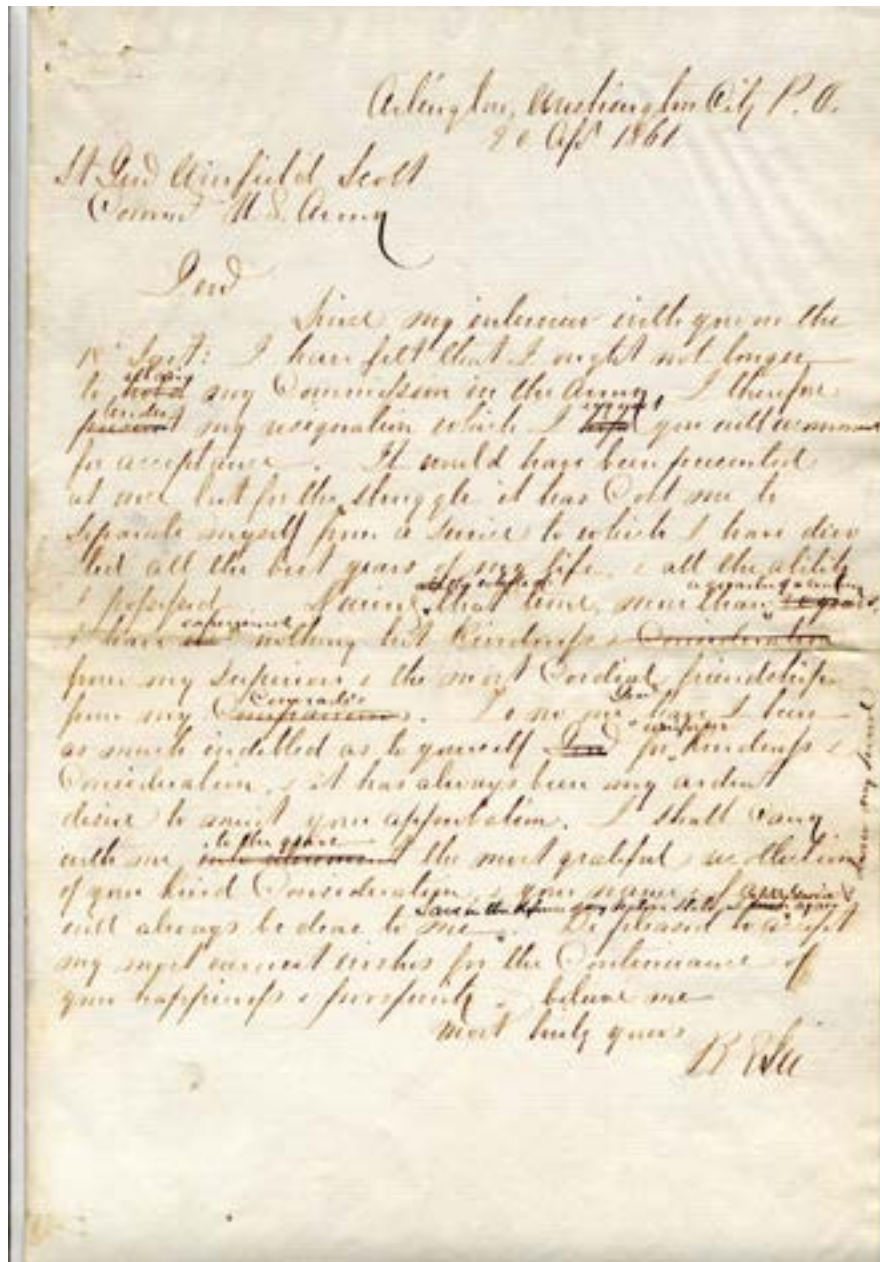 Arlington, Washington City P.O.
20 Apl 1861
Lt Genl Winfield Scott
Commd U.S. Army
Genl
Since my interview with you on the
18th Inst: I have felt that I ought not longer
retain
to hold my Commission in the Army, I therefore
tender request
present my resignation which I hope you will recommend
for acceptance. It would have been presented
at once but for the struggle it has Cost me to
separate myself from a service to which I have devo
ted all the best years of my life, & all the ability
I possessed. During that time, more than 30 years,
experienced
I have nothing but kindness & Consideration
from my superiors & the most Cordial friendship
Comrades Genl
from my Companions. To no one have I been
uniform
as much indebted as to yourself for kindness &
Consideration, & it has always been my ardent
desire to merit your approbation. I shall carry
to the grave
with me the most grateful recollection
of your kind Consideration, & your name & fame
Save in the defence of my native State
will always be dear to me. Be pleased to accept
my most earnest wishes for the Continuance of
your happiness & prosperity & believe me
most truly yours
R E Lee
draw my sword